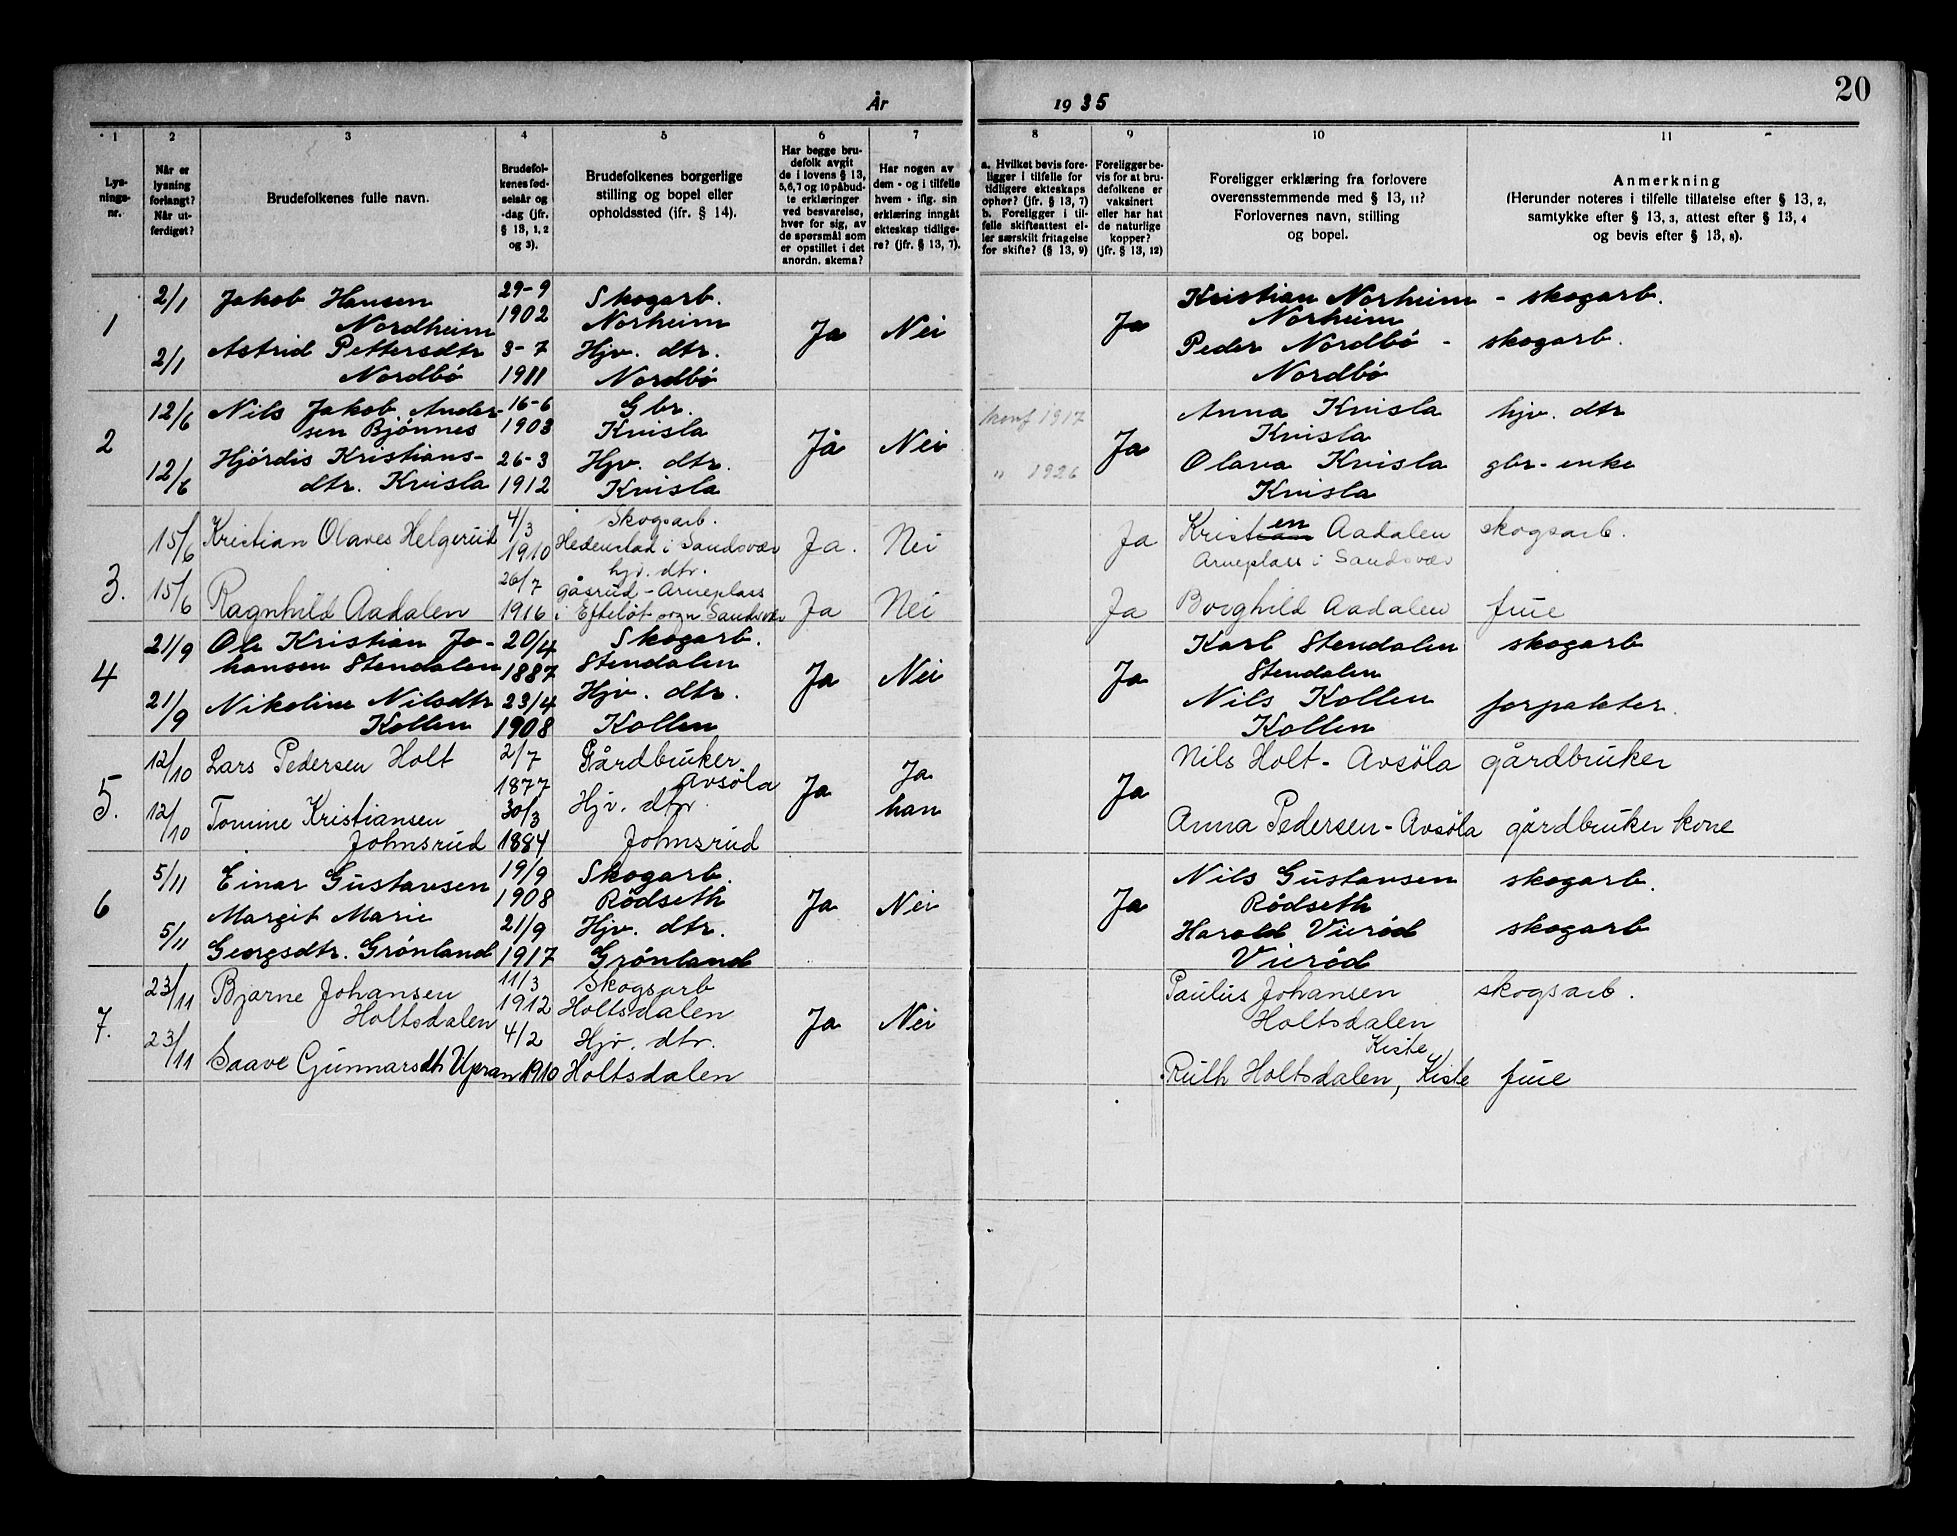 År 1935
20
1
Lys-
nings-
nr.
2
Når er
lysning
forlangt?
Når ut-
ferdiget?
3
Brudefolkenes fulle navn.
4
Brudefol-
kenes fød-
selsår og
-dag (jfr.
§ 13, 1, 2
og 3).
5
Brudefolkenes borgerlige
stilling og bopel eller
opholdssted (ifr. § 14).
6
Har begge bru-
defolk avgit
de i lovens § 13,
5,6,7 og 10 påbud-
te erklæringer
ved besvarelse,
hver for sig, av
de spørsmål som
er opstillet i det
anordn. skema?
7
Har nogen av
dem - og i tilfelle
hvem - iflg. sin
erklæring inngåt
ekteskap tidlige-
re? (jfr. § 13, 7).
8
a. Hvilket bevis fore-
ligger i tilfelle for
tidligere ekteskaps
ophør? (jfr. § 13, 7)
b. Foreligger i til-
felle skifteattest el-
ler særskilt fritagelse
for skifte? (§ 13, 9)
9
Foreligger be-
vis for at bru-
defolkene er
vaksinert
eller har hat
de naturlige
kopper?
(jfr. § 13, 12)
10
Foreligger erklæring fra forlovere
overensstemmende med § 13, 11?
Forlovernes navn, stilling
og bopel.
11
Anmerkning
(Herunder noteres i tilfelle tillatelse efter § 13, 2,
samtykke efter § 13, 3, attest efter § 13, 4
og bevis efter § 13, 8).
1
2/1 Jakob Hansen 29-9 Skogarb. Kristian Norheim - skogarb.
Nordheim 1902 Norheim Ja Nei Ja Norheim
2/1 Astrid Pettersdtr 3-7 Hjv. dtr. Peder Nordbö - skogarb.
Nordbö 1911 Nordbö Nordbö
2
12/6 Nils Jakob Ander- 16-6 Gbr. konf 1917 Anna Kvisla hjv. dtr
sen Bjönnes 1903 Kvisla Ja Nei Ja Kvisla
12/6 Hjördis Kristians- 26-3 Hjv. dtr. " 1926 Olava Kvisla gbr-enke
dtr. Kvisla 1912 Kvisla Kvisla
3.
15/6 Kristian Olaves Helgerud 4/3 Skogsarb. Ja. Nei Ja Kristian en Aadalen skogsarb.
1910 Hedenstad i Sandsvær Arneplass i Sandsvær
15/6 Ragnhild Aadalen 26/7 hjv. dtr.
gåsrud - Arneplass
1916 i Efteløt sogn Sandsvær Ja Nei Ja Borghild Aadalen frue
4
21/9 Ole Kristian Jo- 20/4 Skogarb. Karl Stendalen skogarb
hansen Stendalen 1887 Stendalen Ja Nei Ja Stendalen
21/9 Nikoline Nilsdtr 23/4 Hjv. dtr. Nils Kollen forpakter.
Kollen 1908 Kollen Kollen
5.
12/10 Lars Pedersen Holt 2/7 Gårdbruker Nils Holt - Avsöla gårdbruker
1877 Avsöla Ja Ja Ja
12/10 Tomine Kristiansen 30/3 Hjv. dtr. han Anna Pedersen - Avsöla gårdbruker kone
Johnsrud 1884 Johnsrud
6
5/11 Einar Gustavsen 19/9 Skogarb. Nils Gustavsen skogarb.
1908 Rödseth Ja Nei Ja Rödseth
5/11 Margit Marie 21/9 Hjv. dtr. Harold Vieröd skogarb
Georgsdtr. Grönland 1917 Grönland Vieröd
7.
23/11 Bjarne Johansen 11/3 Skogsarb Paulus Johansen skogsarb.
Holtsdalen 1912 Holtsdalen Ja Nei Holtsdalen
23/11 4/2 Hjv. dtr. Kiste
Saave Gunnarsdtr 1910 Holtsdalen Ruth Holtsdalen, Kiste frue